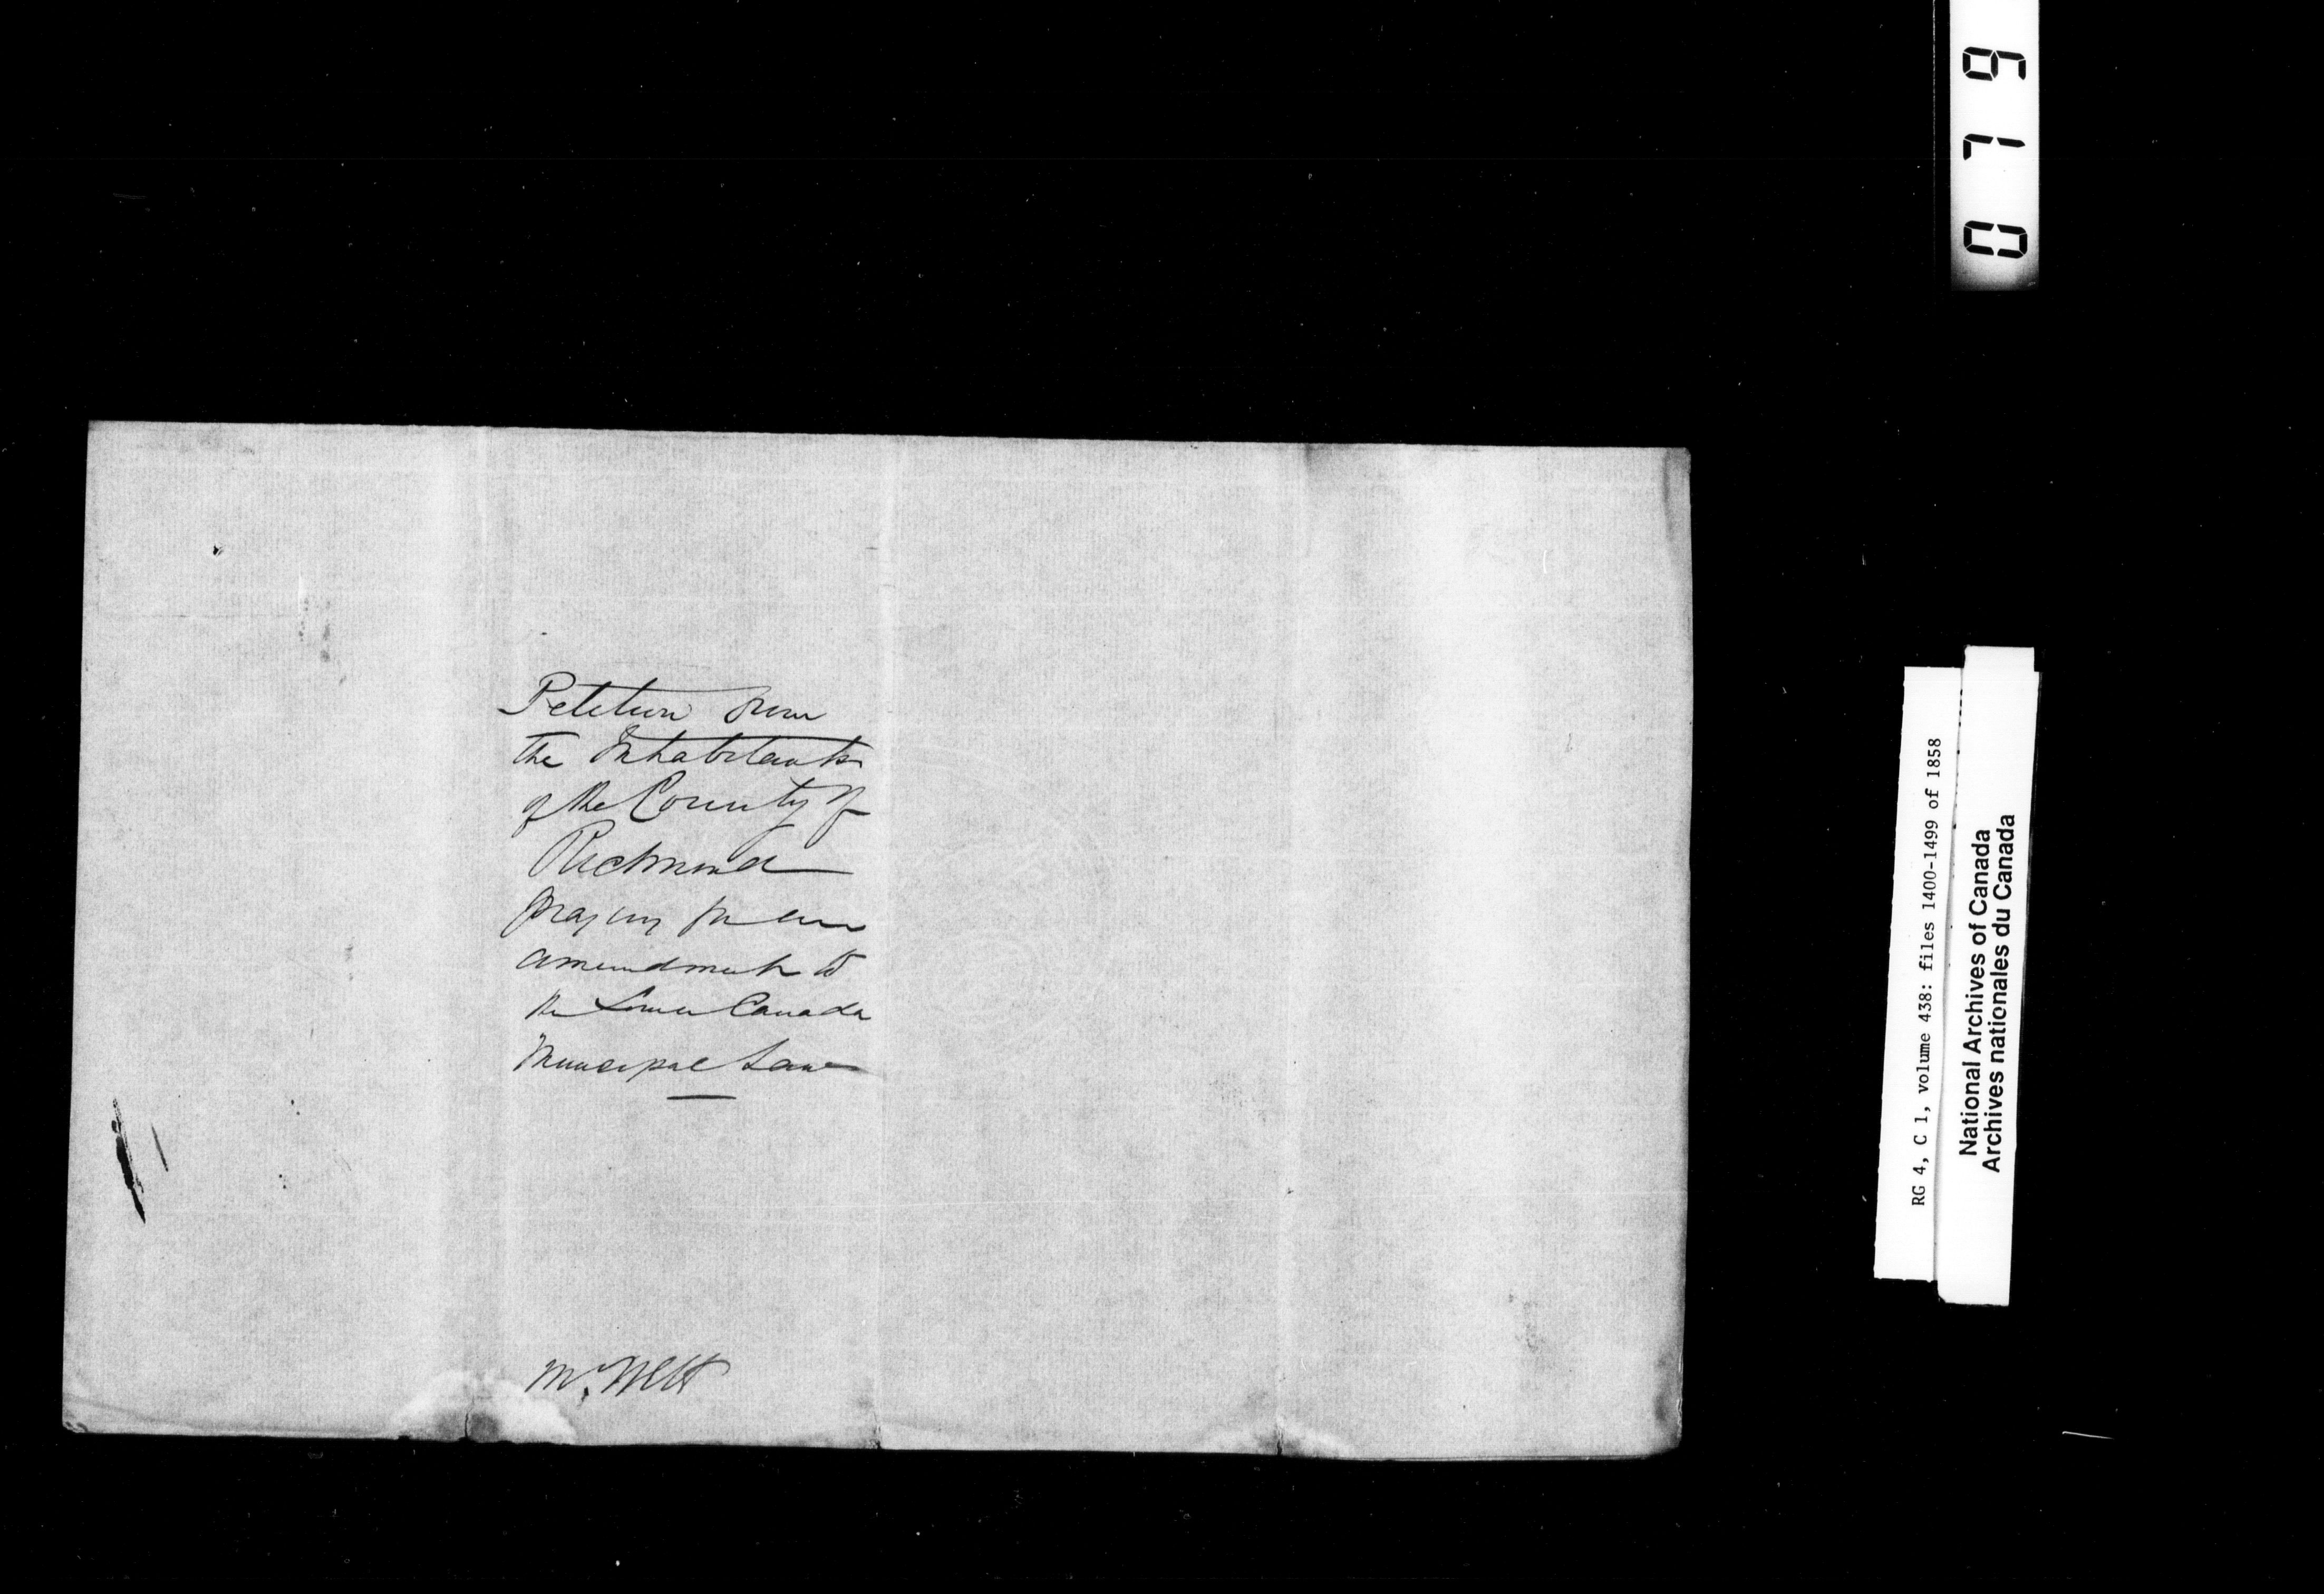 Petition from
the Inhabitants
of the County of
Richmond
praying for an
amendment to
the Lower Canada
Municipal Law
Mr. Webb
0719
RG 4, C 1, volume 438: files 1400-1499 of 1858
National Archives of Canada
Archives nationales du Canada